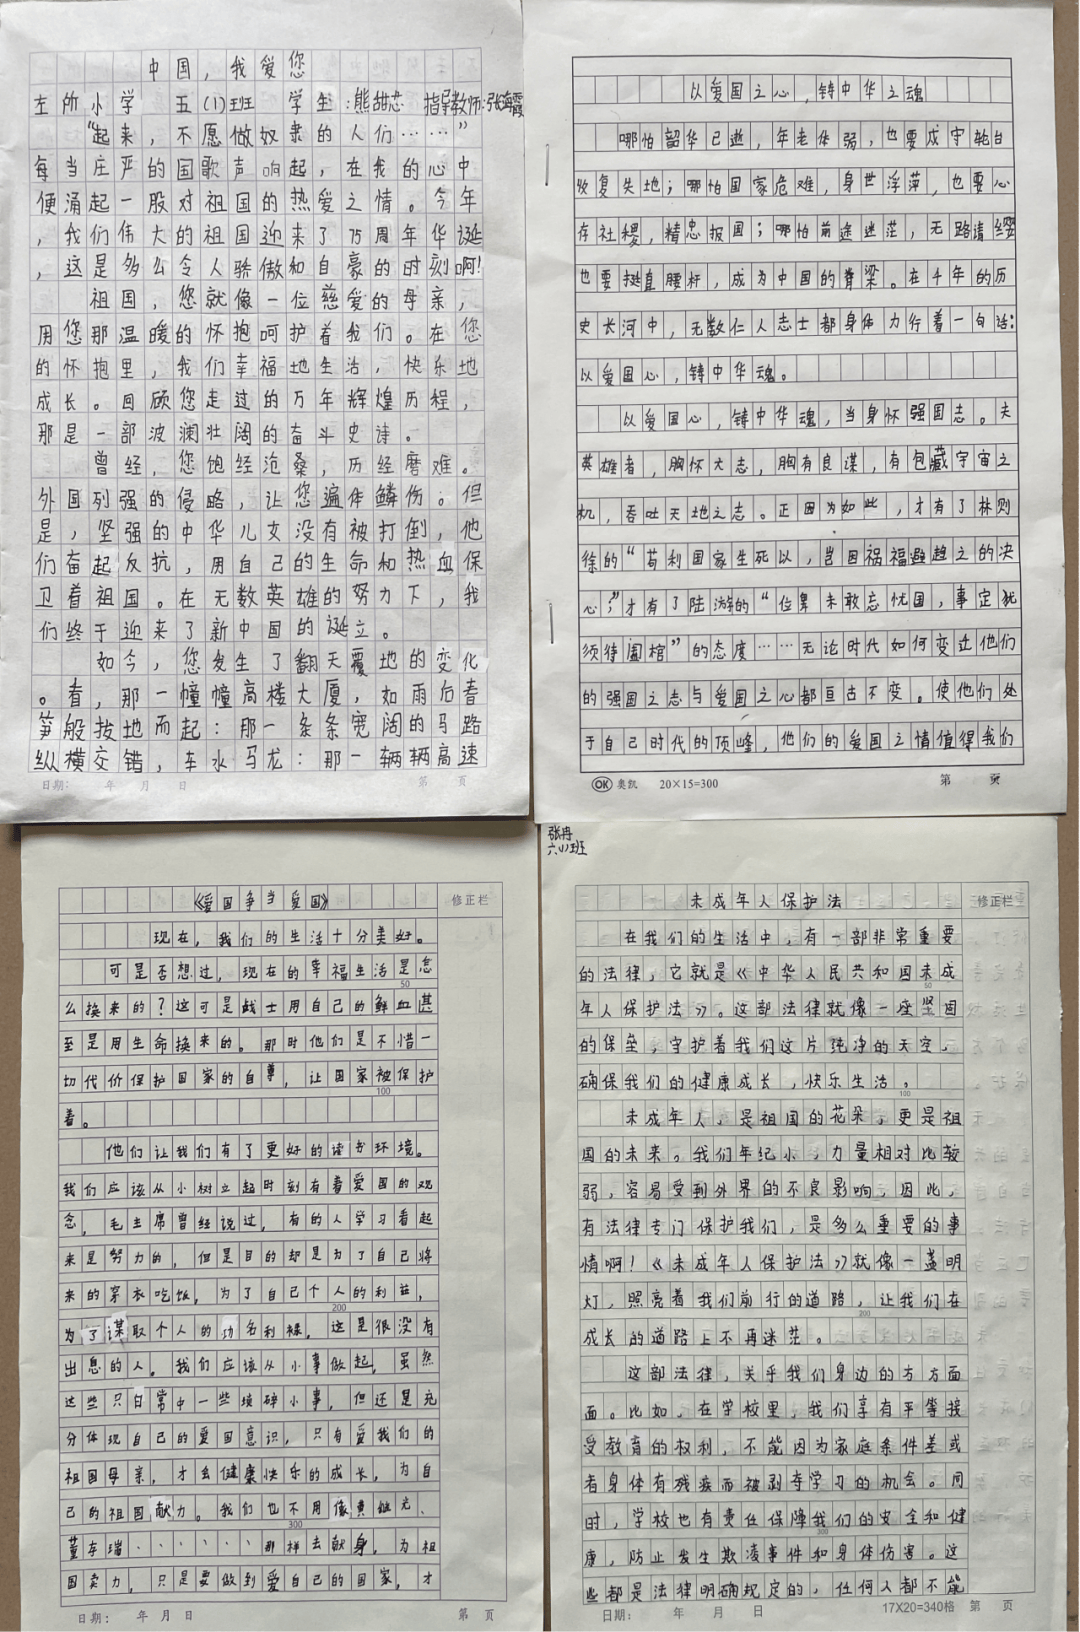 中国，我爱您
左所小学 五(1)班 学生:熊甜芯 指导教师:张海霞
“起来，不愿做奴隶的人们……”
每当庄严的国歌声响起，在我的心中
便涌起一股对祖国的热爱之情。今年
，我们伟大的祖国迎来了75周年华诞
，这是多么令人骄傲和自豪的时刻啊!
祖国，您就像一位慈爱的母亲，
用您那温暖的怀抱呵护着我们。在您
的怀抱里，我们幸福地生活，快乐地
成长。回顾您走过的万年辉煌历程，
那是一部波澜壮阔的奋斗史诗。
曾经，您饱经沧桑，历经磨难。
外国列强的侵略，让您遍体鳞伤。但
是，坚强的中华儿女没有被打倒，他
们奋起反抗，用自己的生命和热血保
卫着祖国。在无数英雄的努力下，我
们终于迎来了新中国的诞立。
如今，您发生了翻天覆地的变化
。看，那一幢幢高楼大厦，如雨后春
笋般拔地而起：那一条条宽阔的马路
纵横交错，车水马龙：那一辆辆高速
日期： 年 月 日 第 页
以爱国之心，铸中华之魂
哪怕韶华已逝，年老体弱，也要戍守轮台
收复失地；哪怕国家危难，身世浮萍，也要心
存社稷，精忠报国；哪怕前途迷茫，无路请缨
也要挺直腰杆，成为中国的脊梁。在千年的历
史长河中，无数仁人志士都身体力行着一句话：
以爱国心，铸中华魂。
以爱国心，铸中华魂，当身怀强国志。夫
英雄者，胸怀大志，胸有良谋，有包藏宇宙之
机，吞吐天地之志。正因为如此，才有了林则
徐的“苟利国家生死以，岂因祸福避趋之的决
心”，才有了陆游的“位卑未敢忘忧国，事定犹
须待阖棺”的态度……无论时代如何变迁他们
的强国之志与爱国之心都亘古不变。使他们处
于自己时代的顶峰，他们的爱国之情值得我们
OK 奥凯 20×15=300 第 页
《爱国争当爱国》
修正栏
现在，我们的生活十分美好。
可是否想过，现在的幸福生活是怎
50
么换来的？这可是战士用自己的鲜血甚
至是用生命换来的。那时他们是不惜一
切代价保护国家的自尊，让国家被保护
100
着。
他们让我们有了更好的读书环境。
我们应该从小树立起时刻有着爱国的观
念，毛主席曾经说过，有的人学习看起
来是努力的，但是目的却是为了自己将
来的穿衣吃饭，为了自己个人的利益，
200
为了谋取个人的功名利禄，这是很没有
出息的人。我们应该从小事做起，虽然
这些只日常中一些琐碎小事，但还是充
分体现自己的爱国意识，只有爱我们的
祖国母亲，才会健康快乐的成长，为自
己的祖国献力。我们也不用像黄继光、
300
董存瑞······那样去献身，为祖
国卖力，只是要做到爱自己的国家，才
日期： 年 月 日 第 页
张冉
六(1)班
未成年人保护法
修正栏
在我们的生活中，有一部非常重要
的法律，它就是《中华人民共和国未成
50
年人保护法》。这部法律就像一座坚固
的保垒，守护着我们这片纯净的天空，
确保我们的健康成长，快乐生活。
100
未成年人，是祖国的花朵，更是祖
国的未来。我们年纪小，力量相对比较
弱，容易受到外界的不良影响，因此，
有法律专门保护我们，是多么重要的事
情啊！《未成年人保护法》就像一盏明
灯，照亮着我们前行的道路，让我们在
200
成长的道路上不再迷茫。
这部法律，关乎我们身边的方方面
面。比如，在学校里，我们享有平等接
受教育的权利，不能因为家庭条件差或
者身体有残疾而被剥夺学习的机会。同
时，学校也有责任保障我们的安全和健
300
康，防止发生欺凌事件和身体伤害。这
些都是法律明确规定的，任何人都不能
日期： 年 月 日 17X20=340格 第 页